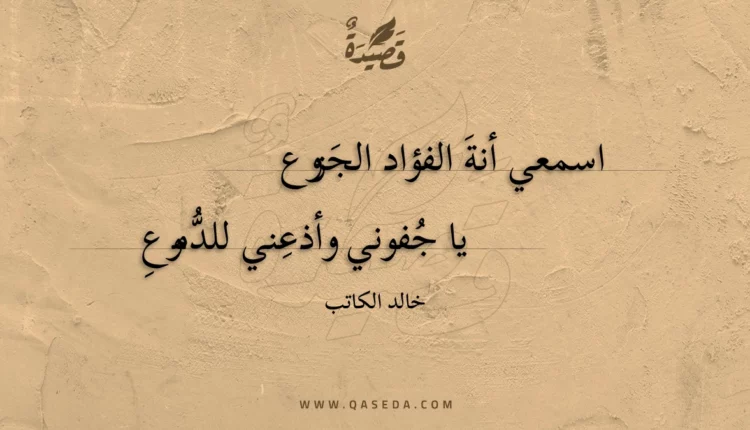 قَصِيدَةٌ
اسمعي أنةَ الفؤاد الجَزوع
يا جُفوني وأذعِني للدُّموعِ
خالد الكاتب
WWW.QASEDA.COM